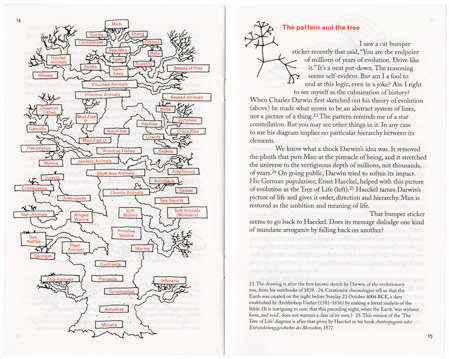 14
MAN
Gorilla
Orang
Chimpanzee
Gibbon
Ape-Men
Apes
Bats
Hoofed Animals
Sloths
Semi-Apes
Rodents
Beasts of Prey
Whales
Pouched Animals
Primitive Animals
Beaked Animals
Osseous Fishes
Mud-Fish
Birds
Reptiles
Tortoises
Ganoids
Amphibia
Lizards
Crocodiles
Mud-Fish
Petromyzon
Primitive Fishes
Snakes
Myxine
Jawless Animals
Insects
Skull-less Animals
Amphioxus
Crustaceans
Ascidians
Chorda Animals
Salpae
Arthropods
Sea-Squirts
Star-Animals
Ringed Worms
Soft Worms
Soft Animals (Mollusca)
Sea-Nettles
Primitive Worms
Plant-Animals
Worms
Sponges
Gastreads
Egg-Animals
Planaeada
Infusoria
Synamoebae
Amoebae
Monera
The pattern and the tree
I saw a car bumper
sticker recently that said, “You are the endpoint
of millions of years of evolution. Drive like
it.” It’s a neat put-down. The reasoning
seems self-evident. But am I a fool to
nod at this logic, even in a joke? Am I right
to see myself as the culmination of history?
When Charles Darwin first sketched out his theory of evolution
(above) he made what seems to be an abstract system of lines,
not a picture of a thing.23 The pattern reminds me of a star
constellation. But you may see other things in it. In any case
to me his diagram implies no particular hierarchy between its
elements.
We know what a shock Darwin’s idea was. It removed
the plinth that puts Man at the pinnacle of being, and it stretched
the universe to the vertiginous depth of millions, not thousands,
of years.24 On going public, Darwin tried to soften its impact.
His German popularizer, Ernst Haeckel, helped with this picture
of evolution as the Tree of Life (left).25 Haeckel tames Darwin’s
picture of life and gives it order, direction and hierarchy. Man is
restored as the ambition and meaning of life.
That bumper sticker
seems to go back to Haeckel. Does its message dislodge one kind
of mundane arrogance by falling back on another?
23. The drawing is after the first known sketch by Darwin of the evolutionary
tree, from his notebooks of 1839. 24. Creationist chronologies tell us that the
Earth was created on the night before Sunday 23 October 4004 BCE, a date
established by Archbishop Ussher (1581–1656) by making a literal analysis of the
Bible. (It is intriguing to note that this preceding night, when the Earth ‘was without
form, and void’, does not warrant a date of its own.) 25. This version of the ‘The
Tree of Life’ diagram is after that given by Haeckel in his book Anthropogenie oder
Entwickelungsgeschichte des Menschen, 1877.
15